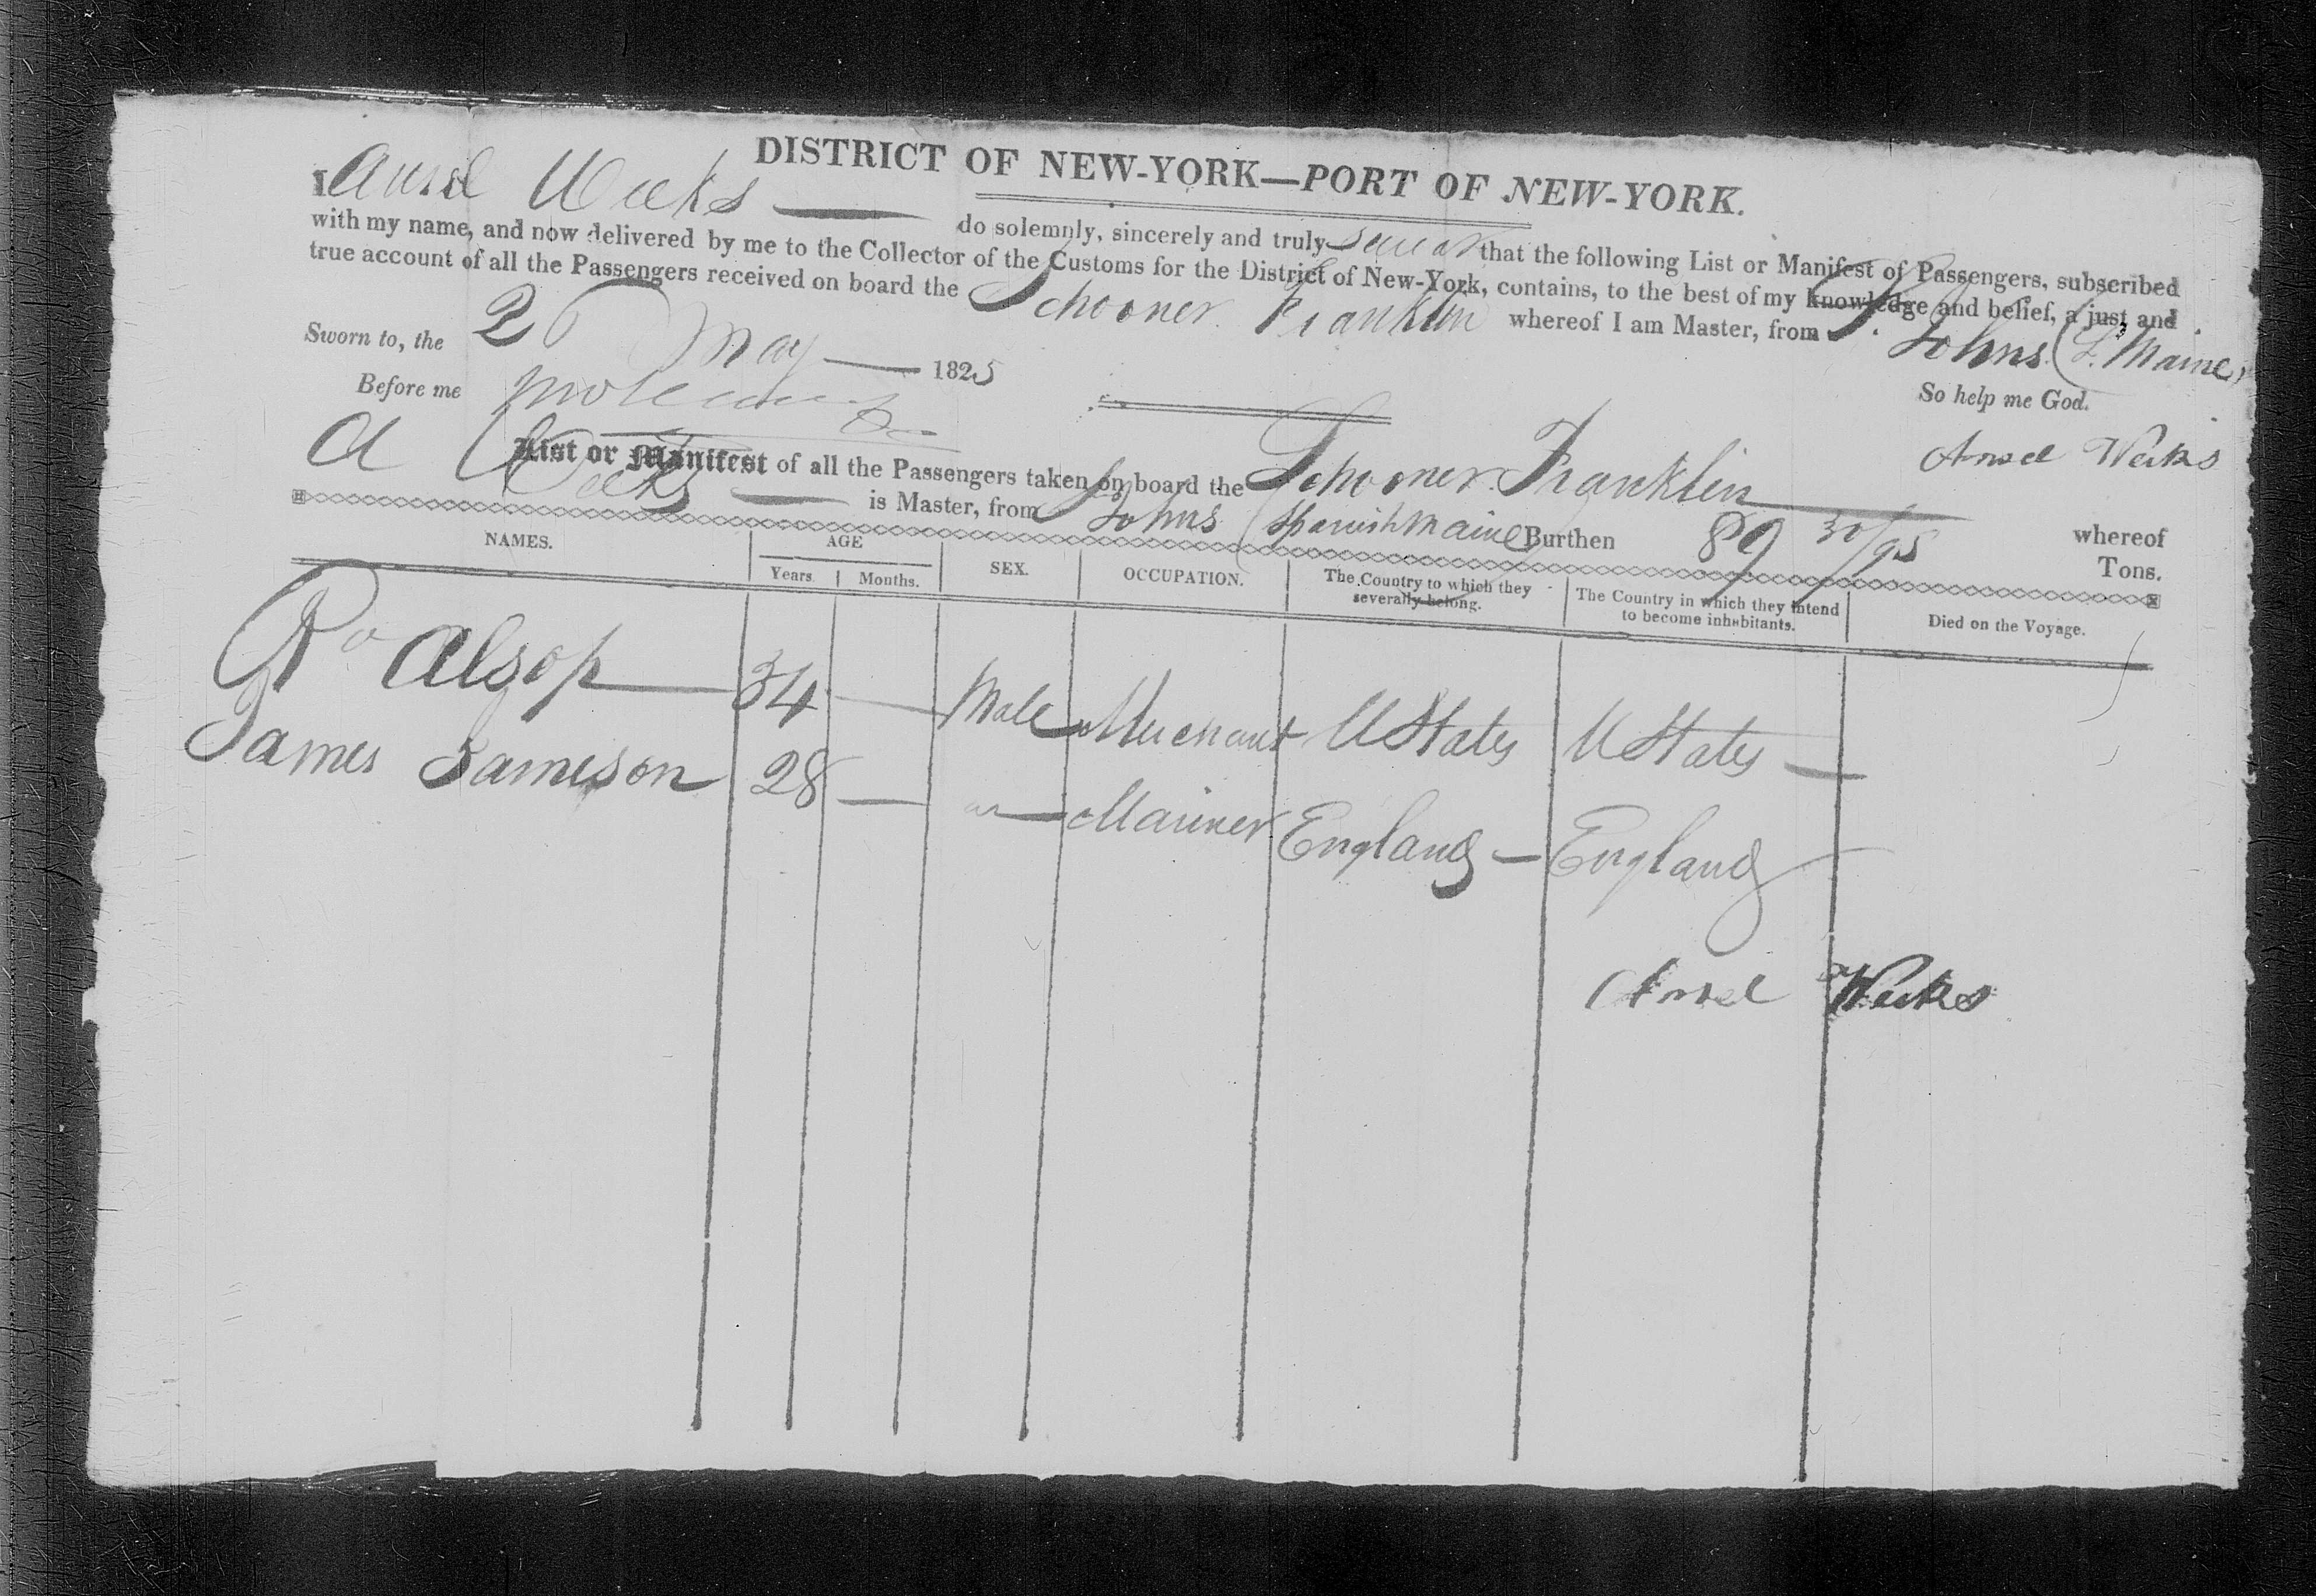 DISTRICT OF NEW-YORK—PORT OF NEW-YORK.
I Ansel Weeks do solemnly, sincerely and truly swear that the following List or Manifest of Passengers, subscribed
with my name, and now delivered by me to the Collector of the Customs for the District of New-York, contains, to the best of my knowledge and belief, a just and
true account of all the Passengers received on board the Schooner Franklin whereof I am Master, from St. Johns (S. Maine)
Sworn to, the 26 May 1825
So help me God.
Before me
Ansel Weeks
List or Manifest of all the Passengers taken on board the Schooner Franklin whereof
A Weeks is Master, from St Johns (Spanish Maine) Burthen 89 30/95 Tons.
NAMES. AGE SEX. OCCUPATION. The Country to which they severally belong. The Country in which they intend to become inhabitants. Died on the Voyage.
Years. Months.
Ro Alsop 34 — Male Merchant UStates UStates —
James Jameson 28 — Mariner England — England —
Ansel Weeks